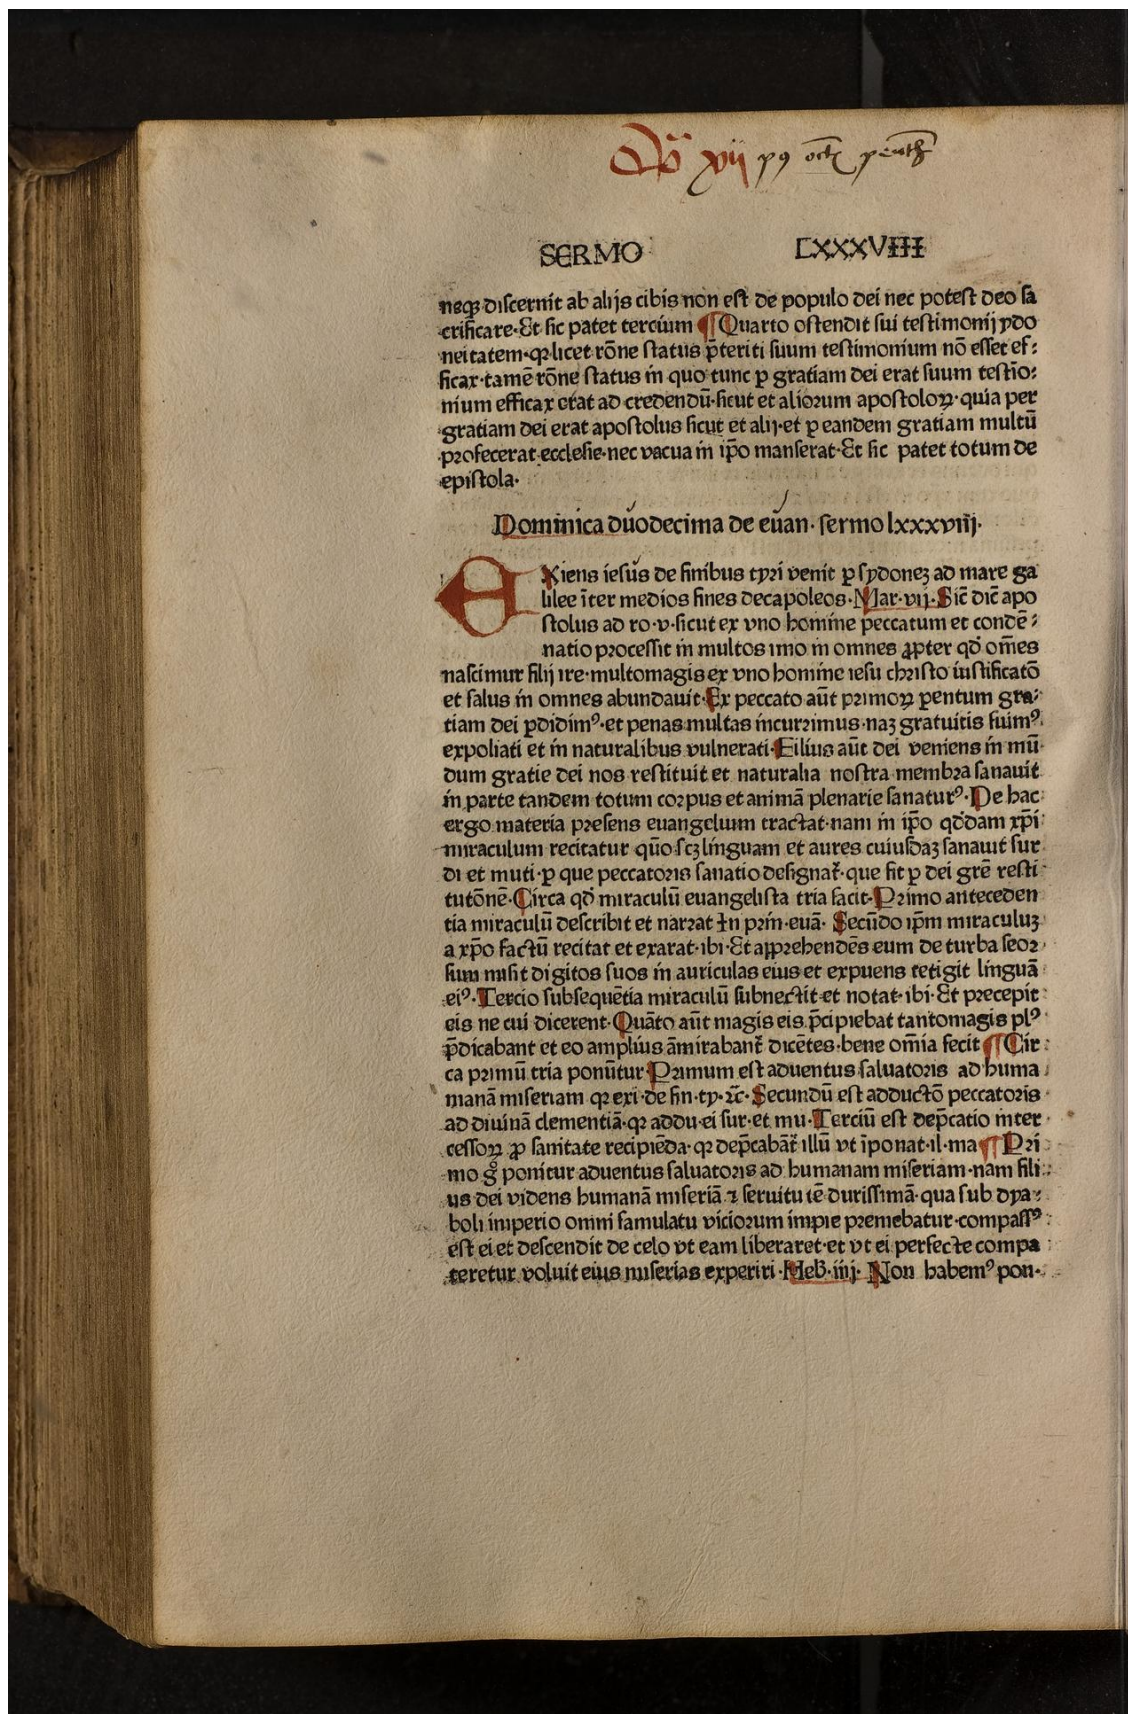 Do xij p9 oct penth
SERMO LXXXVIII
neqꝫ discernit ab alijs cibis non est de populo dei nec potest deo sa
crificare·Et sic patet tercium ¶Quarto ostendit sui testimonij ydo
neitatem·qꝛ licet rōne status p̄teriti suum testimonium nō esset ef⸗
ficax·tamē rōne status in quo tunc ꝑ gratiam dei erat suum testīo⸗
nium efficax erat ad credendū·sicut et aliorum apostoloꝝ·quia per
gratiam dei erat apostolus sicut et alij·et ꝑ eandem gratiam multū
profecerat ecclesie·nec vacua in ip̄o manserat·Et sic patet totum de
epistola·
Dominica duodecima de euan· sermo lxxxviij·
EXiens iesus de finibus tyri venit ꝑ sydoneꝫ ad mare ga
lilee īter medios fines decapoleos·Mar·vij·Sic̄ dic̄ apo
stolus ad ro·v·sicut ex vno homine peccatum et condē⸗
natio processit in multos imo in omnes ꝓpter qd̄ om̄es
nascimur filij ire·multomagis ex vno homine iesu christo iustificatō
et salus in omnes abundauit·Ex peccato aūt primoꝝ ꝑentum gra⸗
tiam dei ꝑdidimꝰ·et penas multas incurrimus·naꝫ gratuitis fuimꝰ
expoliati et in naturalibus vulnerati·Filius aūt dei veniens in mū
dum gratie dei nos restituit et naturalia nostra membra sanauit
in parte tandem totum corpus et animā plenarie sanaturꝰ·De hac
ergo materia presens euangelium tractat·nam in ip̄o qd̄dam xp̄i
miraculum recitatur quō scꝫ linguam et aures cuiusdaꝫ sanauit sur
di et muti·ꝑ que peccatoris sanatio designat̄·que fit ꝑ dei grē resti
tutōnē·Circa qd̄ miraculū euangelista tria facit·Primo anteceden
tia miraculū describit et narrat In prin·euā· Secūdo ip̄m miraculuꝫ
a xp̄o factū recitat et exarat·ibi·Et apprehendēs eum de turba seor
sum misit digitos suos in auriculas eius et expuens tetigit linguā
eiꝰ·Tercio subsequētia miraculū subnectit et notat·ibi·Et precepit
eis ne cui dicerent·Quāto aūt magis eis p̄cipiebat tantomagis plꝰ
p̄dicabant et eo amplius āmirabant̄ dicētes·bene om̄ia fecit ¶Cir
ca primū tria ponūtur Primum est aduentus saluatoris ad huma
manā miseriam qꝛ exi·de fin·ty·ꝛc̄·Secundū est adductō peccatoris
ad diuinā clementiā·qꝛ addu·ei sur·et mu·Terciū est dep̄catio inter
cessoꝝ ꝓ sanitate recipiēda·qꝛ dep̄cabāt̄ illū vt īponat·il·ma ¶Pri
mo gͦ ponitur aduentus saluatoris ad humanam miseriam·nam fili
us dei videns humanā miseriā ⁊ seruitutē durissimā·qua sub dya⸗
boli imperio omni famulatu viciorum impie premebatur·compassꝰ
est ei et descendit de celo vt eam liberaret·et vt ei perfecte compa
teretur voluit eius miserias experiri·Heb·iiij· Non habemꝰ pon·